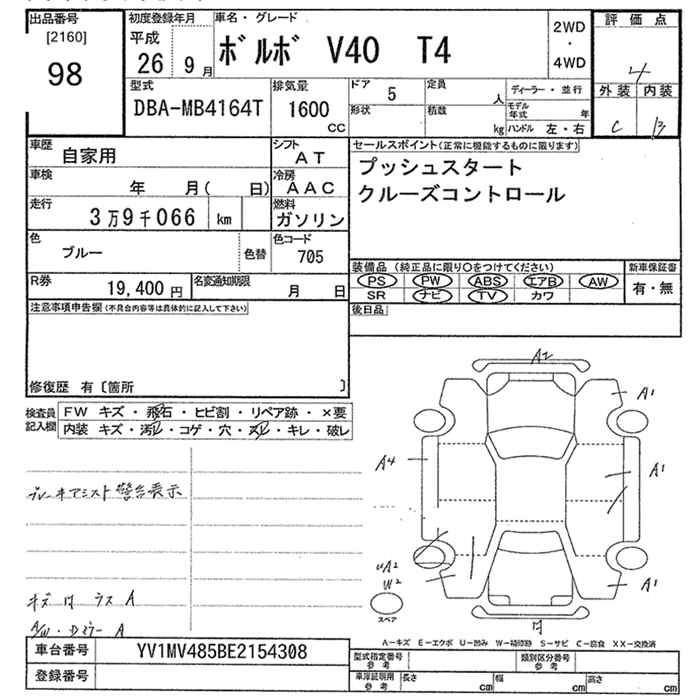 出品番号
[2160]
98
初度登録年月
平成
26 9月
車名・グレード
ボルボ V40 T4
2WD
・
4WD
評価点
4
外装 内装
C B
型式
DBA-MB4164T
排気量
1600
CC
ドア 5
形状
定員 人
積数 kg
ディーラー・並行
モデル年式 年
ハンドル 左・右
車歴 自家用
シフト AT
車検 年 月( 日)
冷房 AAC
走行 3万9千066 km
燃料 ガソリン
色 ブルー 色替
色コード 705
R券 19,400円
名変通知期限 月 日
セールスポイント(正常に機能するものに限ります)
プッシュスタート
クルーズコントロール
装備品(純正品に限り○をつけてください)
PS PW ABS エアB AW
SR ナビ TV カワ
新車保証書
有・無
後日品
注意事項申告欄(不具合内容等は具体的に記入して下さい)
修復歴 有〔箇所 〕
検査員記入欄
FW キズ・飛石・ヒビ割・リペア跡・×要
内装 キズ・汚レ・コゲ・穴・スレ・キレ・破レ
ブレーキアシスト警告表示
キズ
A
A/W・Dミラー A
A2
A1
A4
A1
A2
W2
A1
スペア
A-キズ E-エクボ U-凹み W-補修跡 S-サビ C-腐食 XX-交換済
車台番号 YV1MV485BE2154308
登録番号
型式指定番号
参考
類別区分番号
参考
車庫証明用
参考
長さ cm
幅 cm
高さ cm